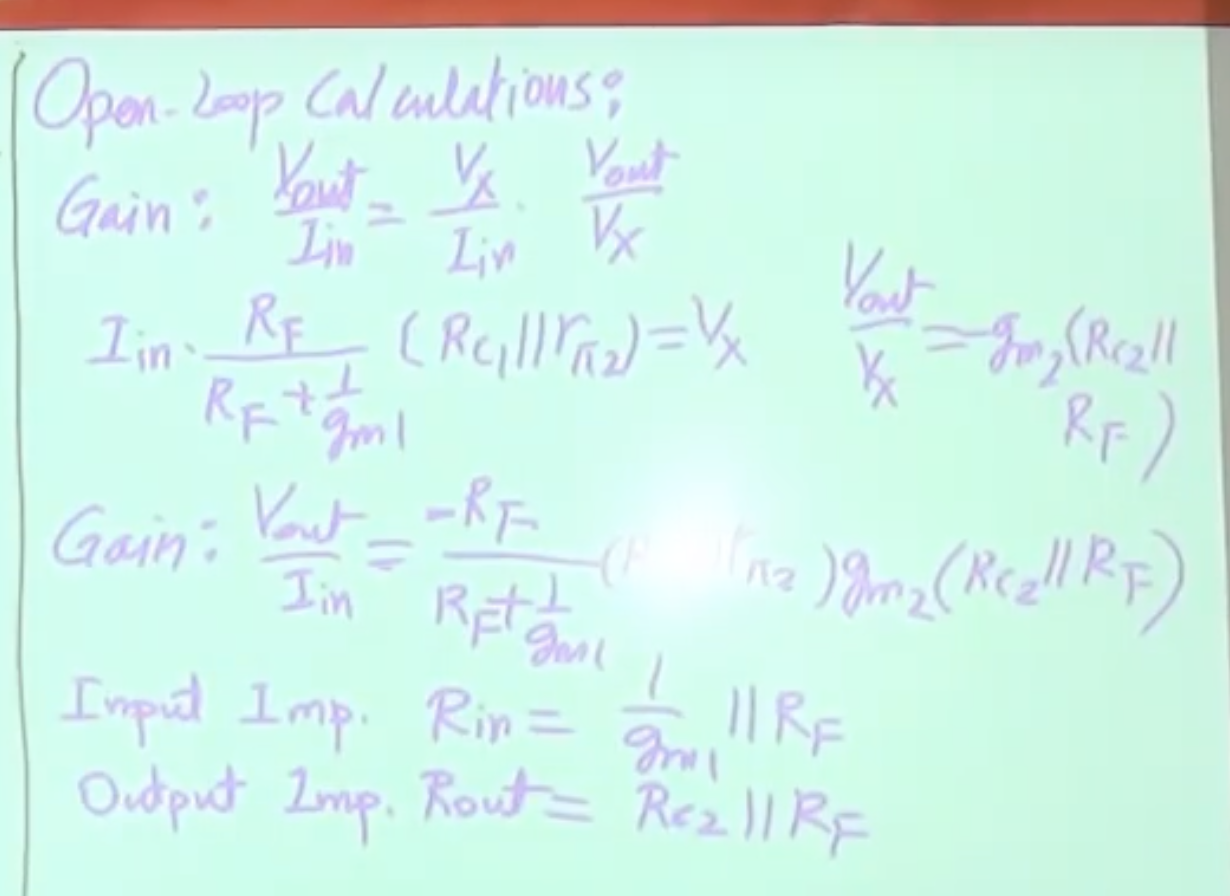 Open-Loop Calculations:
Gain: Vout/Iin = Vx/Iin · Vout/Vx
Iin · RF/(RF + 1/gm1) (RC1||rπ2) = Vx
Vout/Vx = -gm2(RC2||RF)
Gain: Vout/Iin = -RF/(RF + 1/gm1) ( rπ2)gm2(RC2||RF)
Input Imp. Rin = 1/gm1 || RF
Output Imp. Rout = RC2||RF